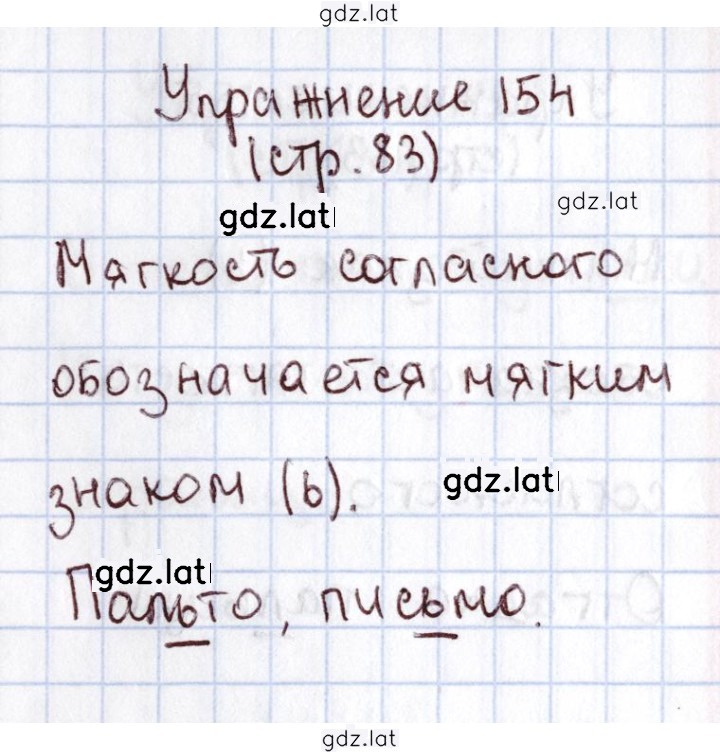 gdz.lat
Упражнение 154
(стр. 83)
gdz.lat
gdz.lat
Мягкость согласного
обозначается мягким
знаком (ь).
gdz.lat
gdz.lat
Пальто, письмо.
gdz.lat